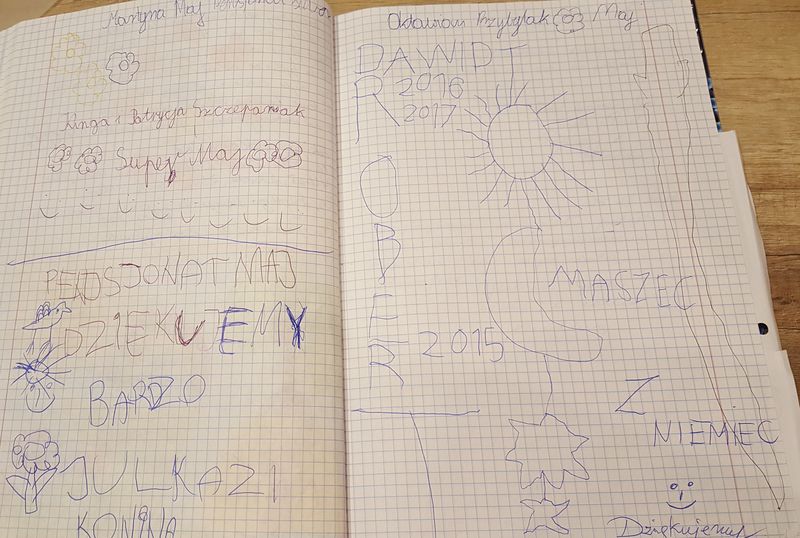 Martyna Maj
Kinga i Patrycja Szczepaniak
Super Maj
PENSJONAT MAJ
DZIĘKUJEMY
BARDZO
JULKA Z I
KONINA
Przybylak Maj
DAWID I
ROBERT
2016
2017
MASZEC
2015
Z
NIEMIEC
Dziękujemy